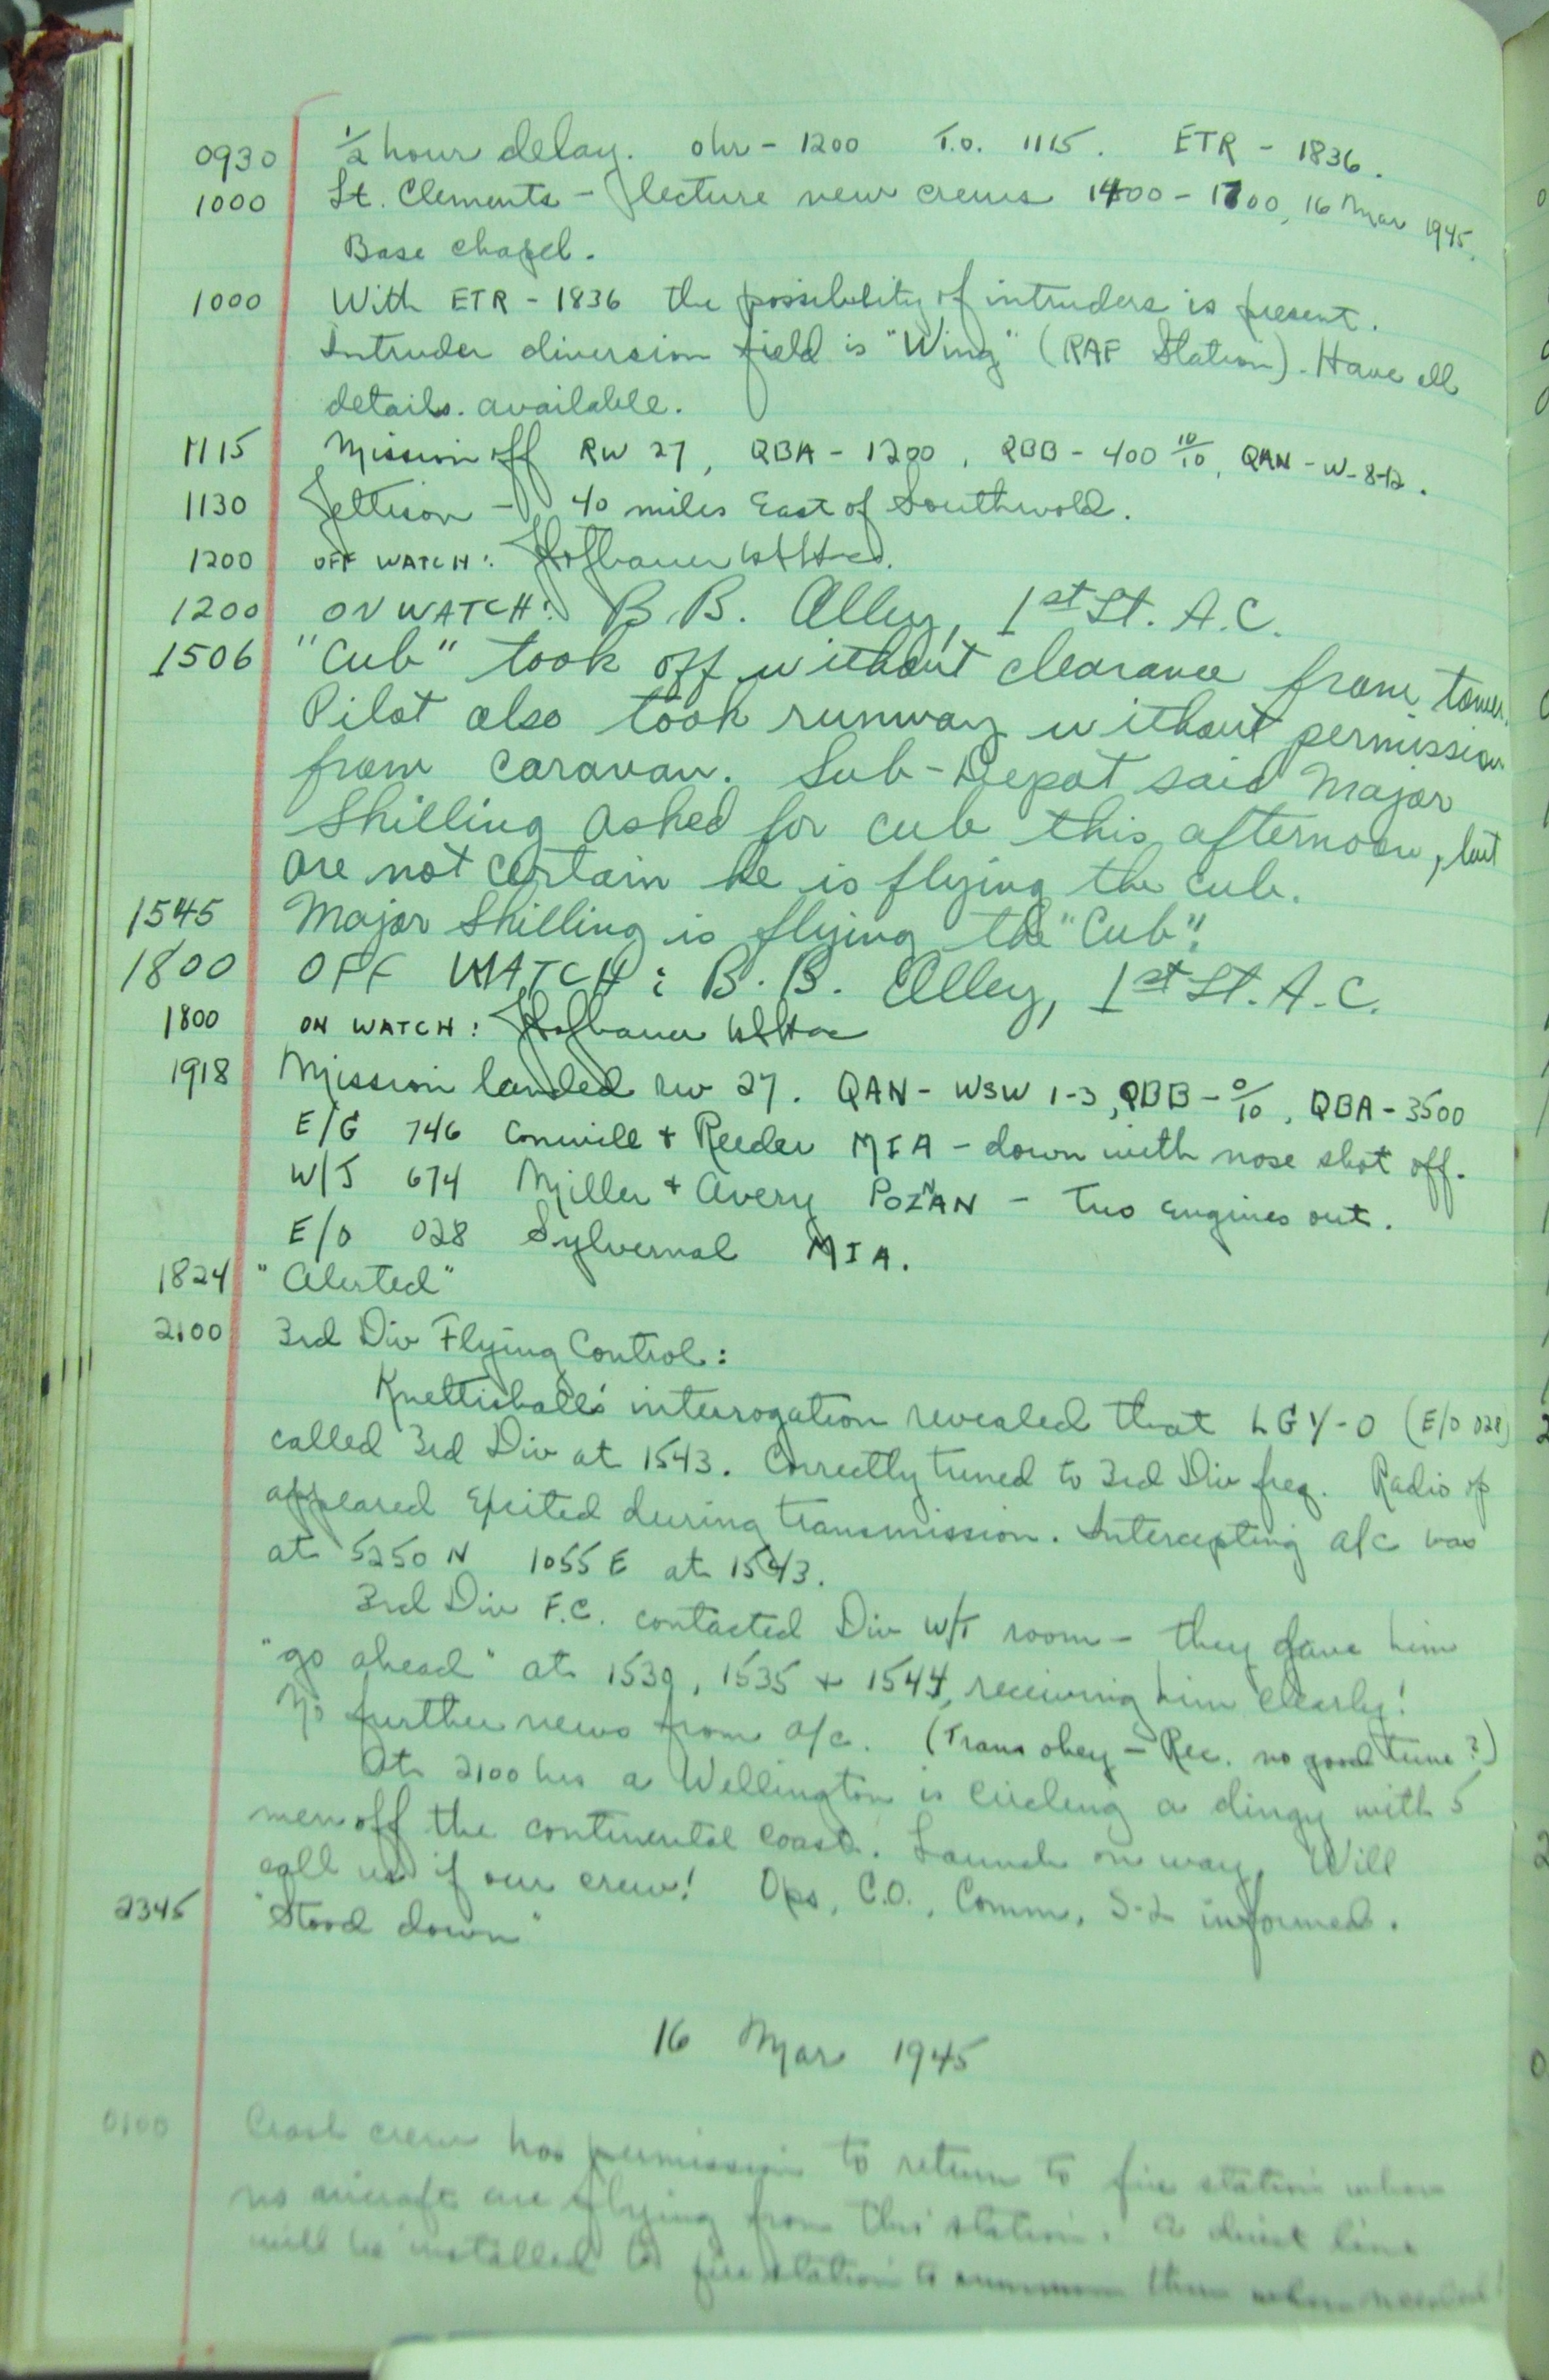 0930 ½ hour delay. 0hr - 1200 T.O. 1115. ETR - 1836.
1000 Lt. Clements - lecture new crews 1400 - 1700, 16 Mar 1945.
Base chapel.
1000 With ETR - 1836 the possibility of intruders is present.
Intruder diversion field is "Wing" (RAF Station). Have all
details. available.
1115 Mission off RW 27, QBA - 1200, QBB - 400 10/10, QAN - W - 8-12.
1130 Jettison - 40 miles East of Southwold.
1200 OFF WATCH: Hofbauer
1200 ON WATCH: B.B. Alley, 1st Lt. A.C.
1506 "Cub" took off without clearance from tower.
Pilot also took runway without permission
from caravan. Sub-Depot said Major
Shilling asked for cub this afternoon, but
are not certain he is flying the cub.
1545 Major Shilling is flying the "Cub".
1800 OFF WATCH: B.B. Alley, 1st Lt. A.C.
1800 ON WATCH: Hofbauer
1918 Mission landed rw 27. QAN - WSW 1-3, QBB - 0/10, QBA - 3500
E/G 746 Conwill + Reeder MIA - down with nose shot off.
W/J 674 Miller + Avery POZNAN - Two engines out.
E/O 028 Sylvernal MIA.
1824 "Alerted"
2100 3rd Div Flying Control:
Knettishall's interrogation revealed that LGY-O (E/O 028)
called 3rd Div at 1543. Correctly tuned to 3rd Div freq. Radio op
appeared excited during transmission. Intercepting a/c was
at 5250 N 1055 E at 1543.
3rd Div F.C. contacted Div W/T room - they gave him
"go ahead" at 1539, 1535 + 1544, receiving him clearly!
No further news from a/c. (Trans okey - Rec. no good tune?)
At 2100 hrs a Wellington is circling a dingy with 5
men off the continental coast. Launch on way. Will
call us if our crew! Ops, C.O., Comm, S-2 informed.
2345 "Stood down"
16 Mar 1945
0100 Crash crew has permission to return to fire station when
no aircraft are flying from this station. A direct line
will be installed to fire station to them when needed!